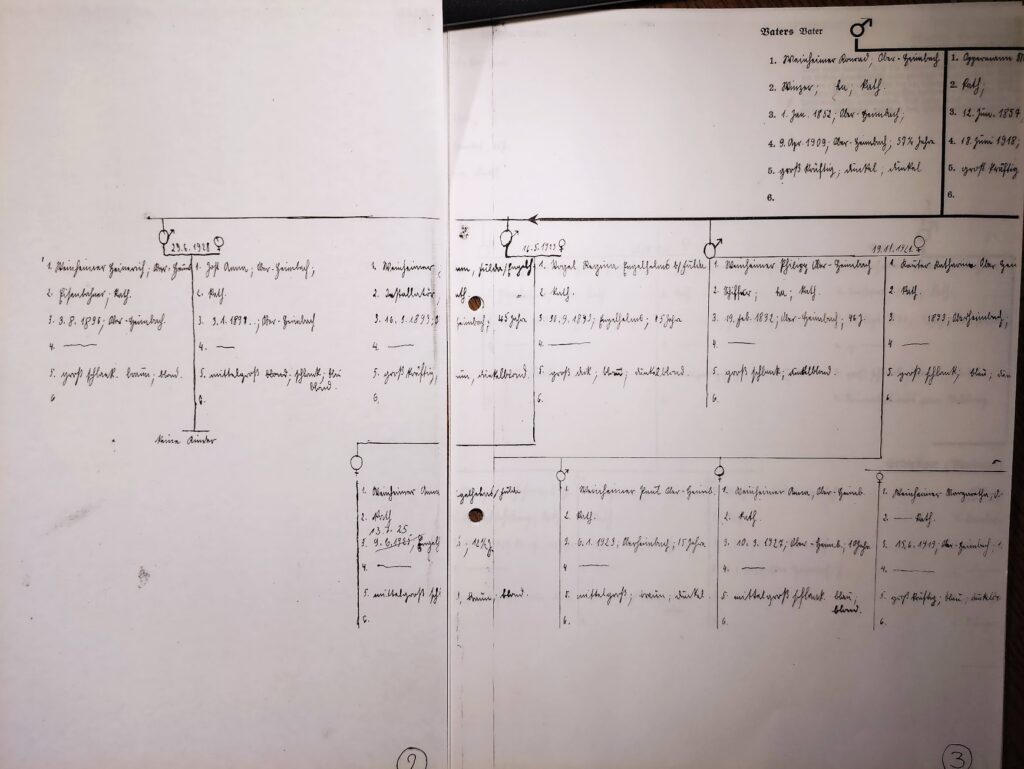 Vaters Vater
1. Weinheimer Konrad, Ober-Heimbach
2. Winzer; kath.
3. 1. Jan. 1852; Ober-Heimbach;
4. 9. Apr. 1909; Ober-Heimbach; 57¼ Jahre
5. groß kräftig; dunkel, dunkel
6.
1. Oppermann
2. Kath;
3. 12. Jun. 1854,
4. 18. Juni 1918;
5. groß kräftig
6.
29.6.1928
1. Weinheimer Heinrich; Ober-
2. Eisenbahner; kath.
3. 3. 8. 1896; Ober-Heimbach.
4. —
5. groß schlank. braun; blond.
6
keine Kinder
1. Jost Anna; Ober-Heimbach;
2. kath.
3. 9.1.1899.; Ober-Heimbach
4. —
5. mittelgroß blond; schlank; blau
blond.
6.
16.5.1923
1. Weinheimer
2. Installatür; kath
3. 16. 9. 1893; Heimbach; 45 Jahre
4. —
5. groß kräftig, braun, dunkelblond.
6.
1. Vogel Regina Engelhelms b/Fulda
2. kath.
3. 30.9.1893; Engelhelms; 45 Jahre
4. —
5. groß dick, blau; dunkelblond.
6.
19.11.1922
1. Weinheimer Philipp Ober-Heimbach
2. Schiffer; kath.
3. 19. Feb. 1892; Ober-Heimbach; 46 J.
4. —
5. groß schlank; dunkelblond.
6.
1. Katharina Ober Hei
2. Kath.
3. 1893; Oberheimbach;
4. —
5. groß schlank; blau; dun
6.
1. Weinheimer Anna Engelhelms/Fulda
2. Kath
13. 7. 25
3.
4. —
5. mittelgroß, braun; blond.
6.
1. Weinheimer Paul Ober-Heimb.
2. Kath.
3. 6.1.1923; Oberheimbach; 15 Jahre
4. —
5. mittelgroß; braun; dunkel.
6.
1. Weinheimer Anna, Ober-Heimb.
2. kath.
3. 10. 9. 1927; Ober-Heimb; 10 Jahre
4. —
5. mittelgroß schlank. blau;
blond.
6.
1. Weinheimer Margaretha, O.
2. — Kath.
3. 15.6.1919; Ober-Heimbach; 1.
4. —
5. groß kräftig; blau; dunkelbl.
6.
2
3